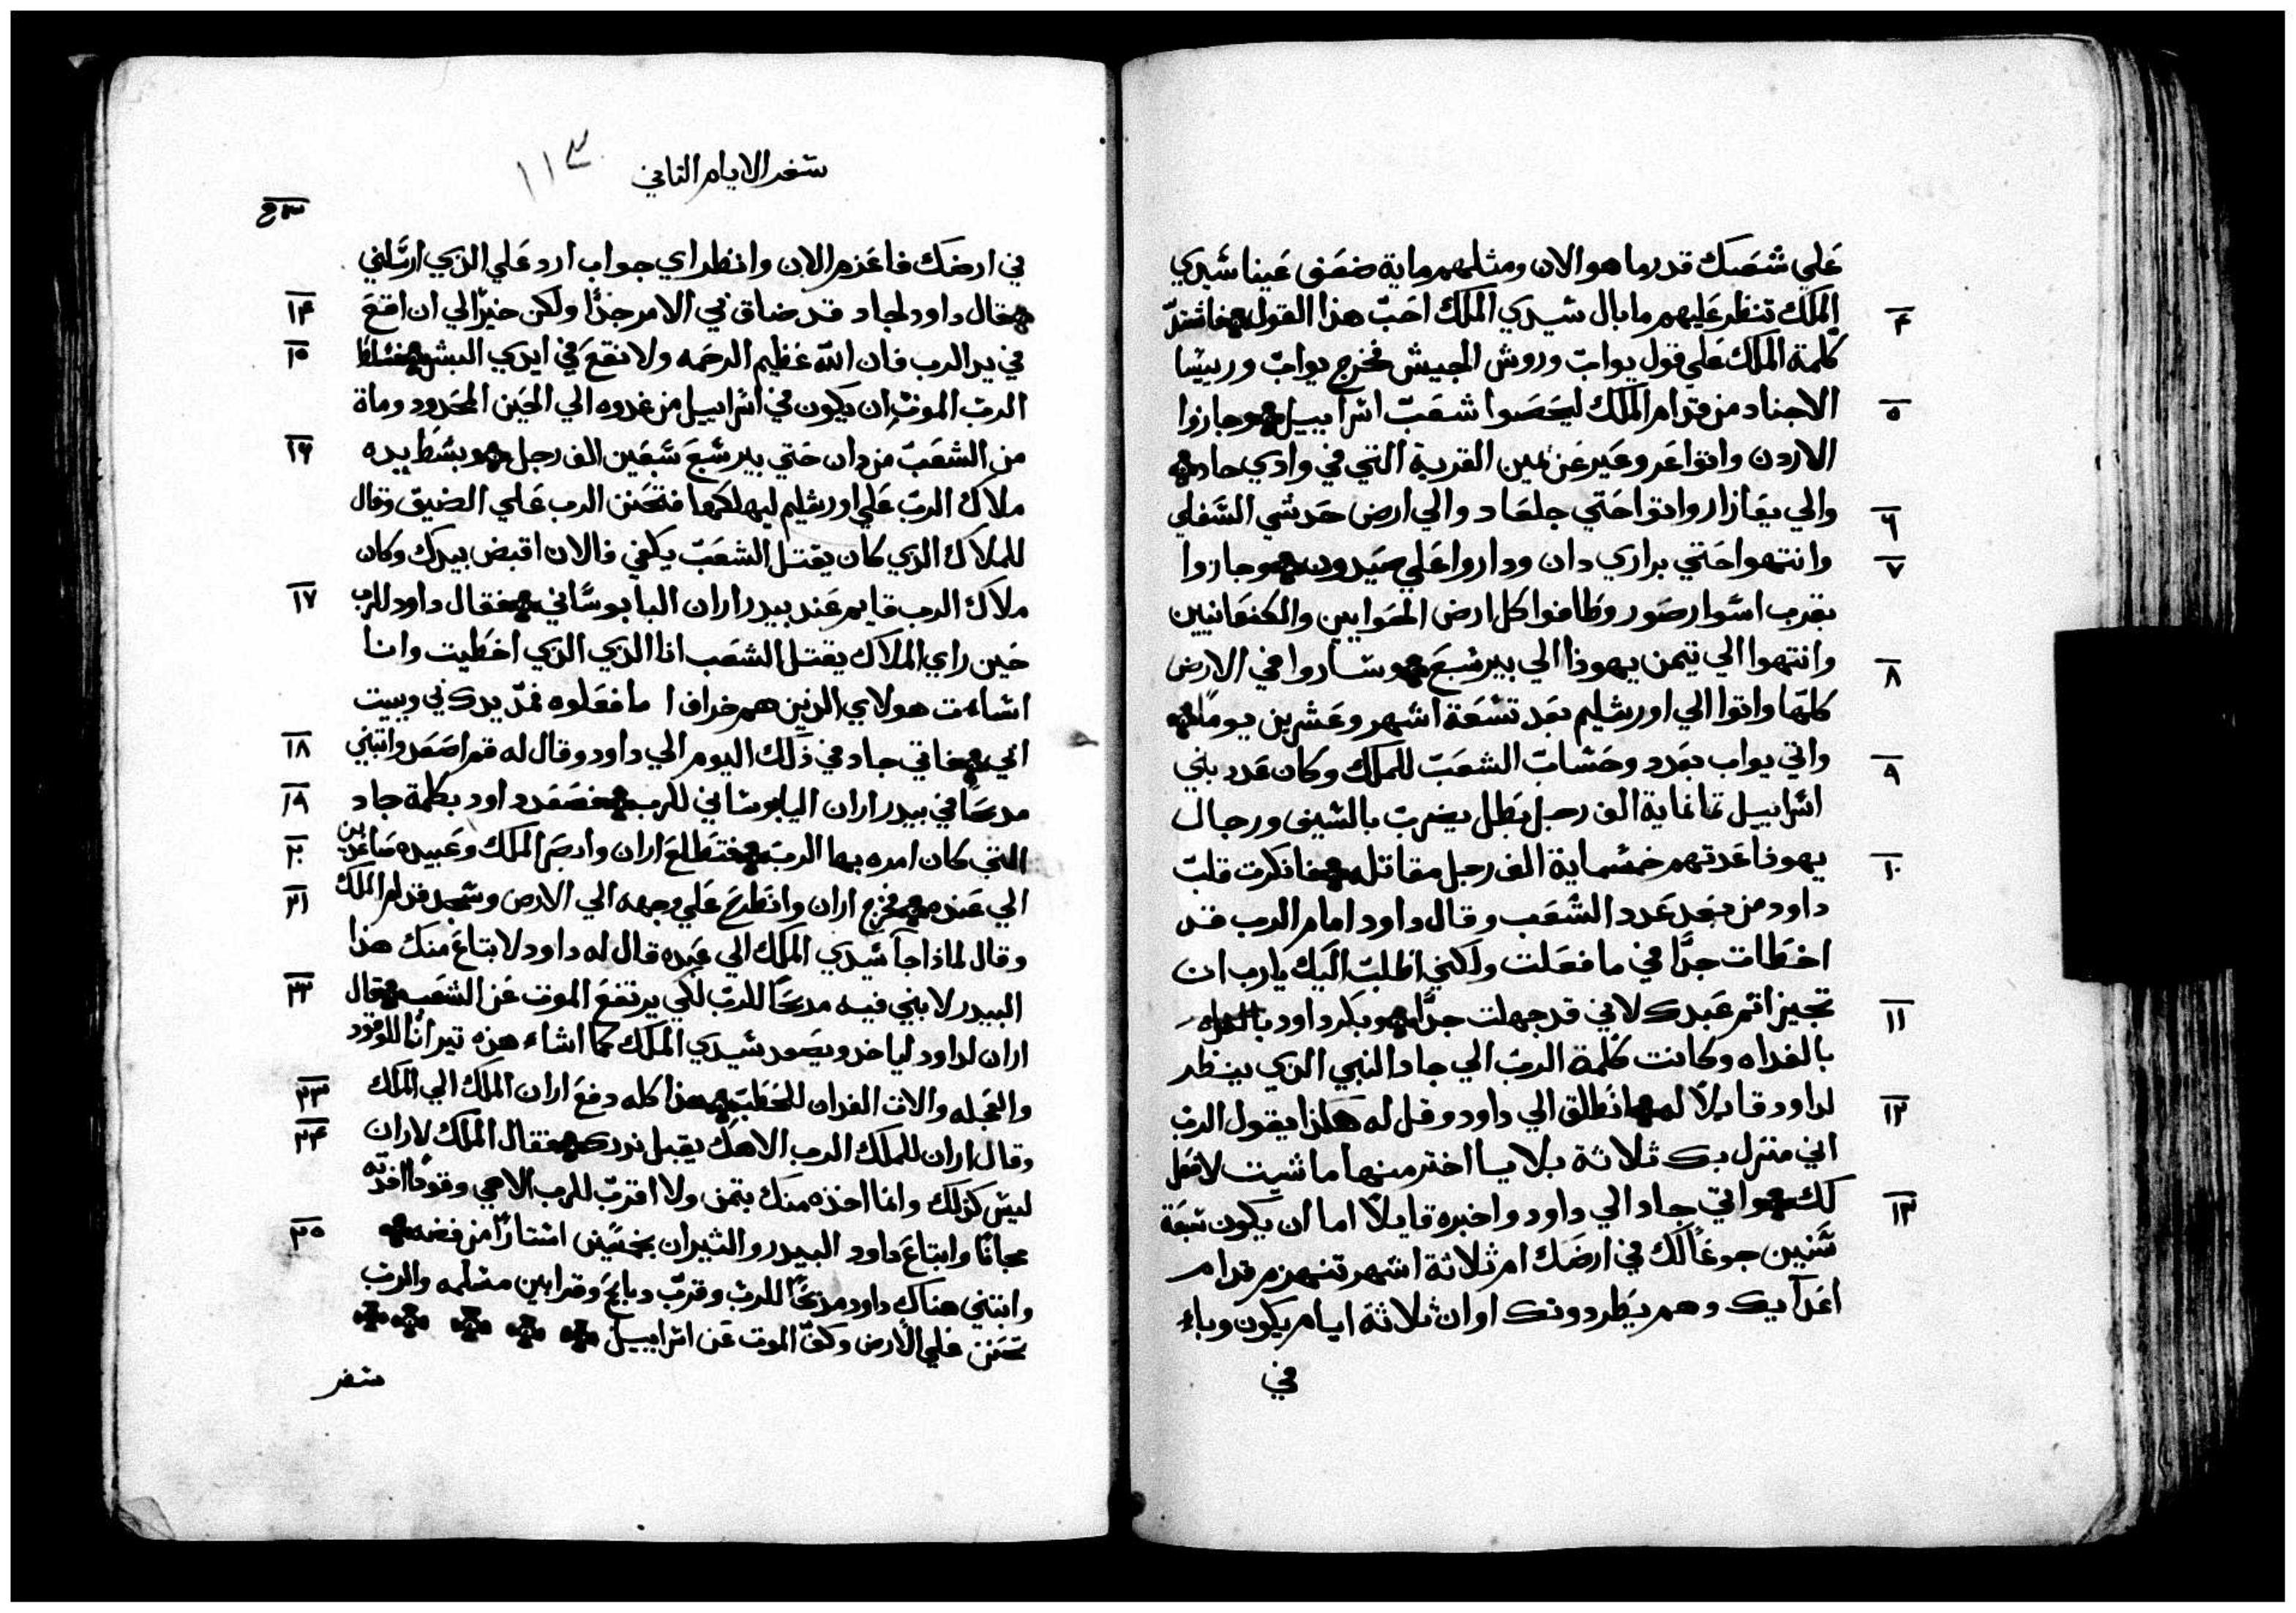 علي شعبك قدر ما هو الان ومثلهم ماية ضعف عينا سيدي
٤ الملك تنظر عليهم ما بال سيدي الملك احب هذا القول فاشتد
كلمة الملك علي قول يواب وروس الجيش فخرج يواب ورييسا
٥ الاجناد من قدام الملك ليحصوا شعب اسراييل وجازوا
الاردن واتوا عروعير عن يمين القرية التي في وادي جاد
٦ والي يعازار واتوا حتي جلعاد والي ارض حدشي السفلي
٧ وانتهوا حتي براري دان وداروا علي صيدون وجازوا
بقرب اسوار صور وطافوا كل ارض الحوايين والكنعانيين
٨ وانتهوا الي تيمن يهوذا الي بير سبع وساروا في الارض
كلها واتوا الي اورشليم بعد تسعة اشهر وعشرين يوما
٩ واتي يواب بعدد وحساب الشعب للملك وكان عدد بني
اسراييل ثمانماية الف رجل بطل يضرب بالسيف ورجال
١٠ يهوذا عدتهم خمسماية الف رجل مقاتل فافكرت قلب
داود من بعد عدد الشعب وقال داود امام الرب قد
اخطات جدا في ما فعلت ولكني اطلب اليك يارب ان
١١ تجيز اثم عبدك لاني قد جهلت جدا وبكر داود
بالغداه وكانت كلمة الرب الي جاد النبي الذي ينظر
١٢ لداود قايلا له انطلق الي داود وقل له هكذا يقول الرب
اني منزل بك ثلاثة بلايا اختر منها ما شيت لافعل
١٣ لك واتي جاد الي داود واخبره قايلا اما ان يكون سبعة
سنين جوعا لك في ارضك ام ثلاثة اشهر تنهزم قدام
اعدآيك وهم يطردونك او ان ثلاثة ايام يكون وباء
في
سفر الايام الثاني ١١٣
في ارضك فاعزم الان وانظر اي جواب ارد علي الذي ارسلني
١٤ فقال داود لجاد قد ضاق بي الامر جدا ولكن خير الي ان اقع
١٥ في يد الرب فان الله عظيم الرحمه ولا نقع في ايدي البشر فسلط
الرب الموت ان يكون في اسراييل من غدوه الي الحين المحدود ومات
١٦ من الشعب من دان حتي بير سبع سبعين الف رجل وبسط يده
ملاك الرب علي اورشليم ليهلكها فتحنن الرب علي الضيق وقال
للملاك الذي كان يقتل الشعب يكفي فالان اقبض بيدك وكان
١٧ ملاك الرب قايم عند بيدر اران اليابوساني فقال داود للرب
حين راي الملاك يقتل الشعب انا الذي الذي اخطيت وانا
اساءت هولاي الذين هم خراف ما فعلوه فمد يدك بي وببيت
١٨ ابي فاتي جاد في ذلك اليوم الي داود وقال له قم اصعد وابتني
١٩ مدبحا في بيدر اران اليابوساني للرب فصعد داود بكلمة جاد
٢٠ التي كان امره بها الرب فتطلع اران وابصر الملك وعبيده صاعدين
٢١ الي عنده فخرج اران وانطرح علي وجهه الي الارض وسجد قدام الملك
وقال لماذا جآ سيدي الملك الي عبده قال له داود لابتاع منك هذا
٢٢ البيدر لابني فيه مدبحا للرب لكي يرتفع الموت عن الشعب فقال
اران لداود لياخذ ويصعد سيدي الملك كما اشاء هذه تيرانا للوقود
٢٣ والعجله والات الفدان للحطب هذا كله دفع اران الملك الي الملك
٢٤ وقال اران للملك الرب الاهك يقبل نذرك فقال الملك لاران
ليس كذلك وانما اخذه منك بتمن ولا اقرب للرب الاهي وقودا
٢٥ مجانا وابتاع داود البيدر والتيران بخمسين استارا من فضه
وابتني هناك داود مدبحا للرب وقرب دبايح وقرابين مسلمه والرب
تحنن علي الارض وكف الموت عن اسراييل
سفر